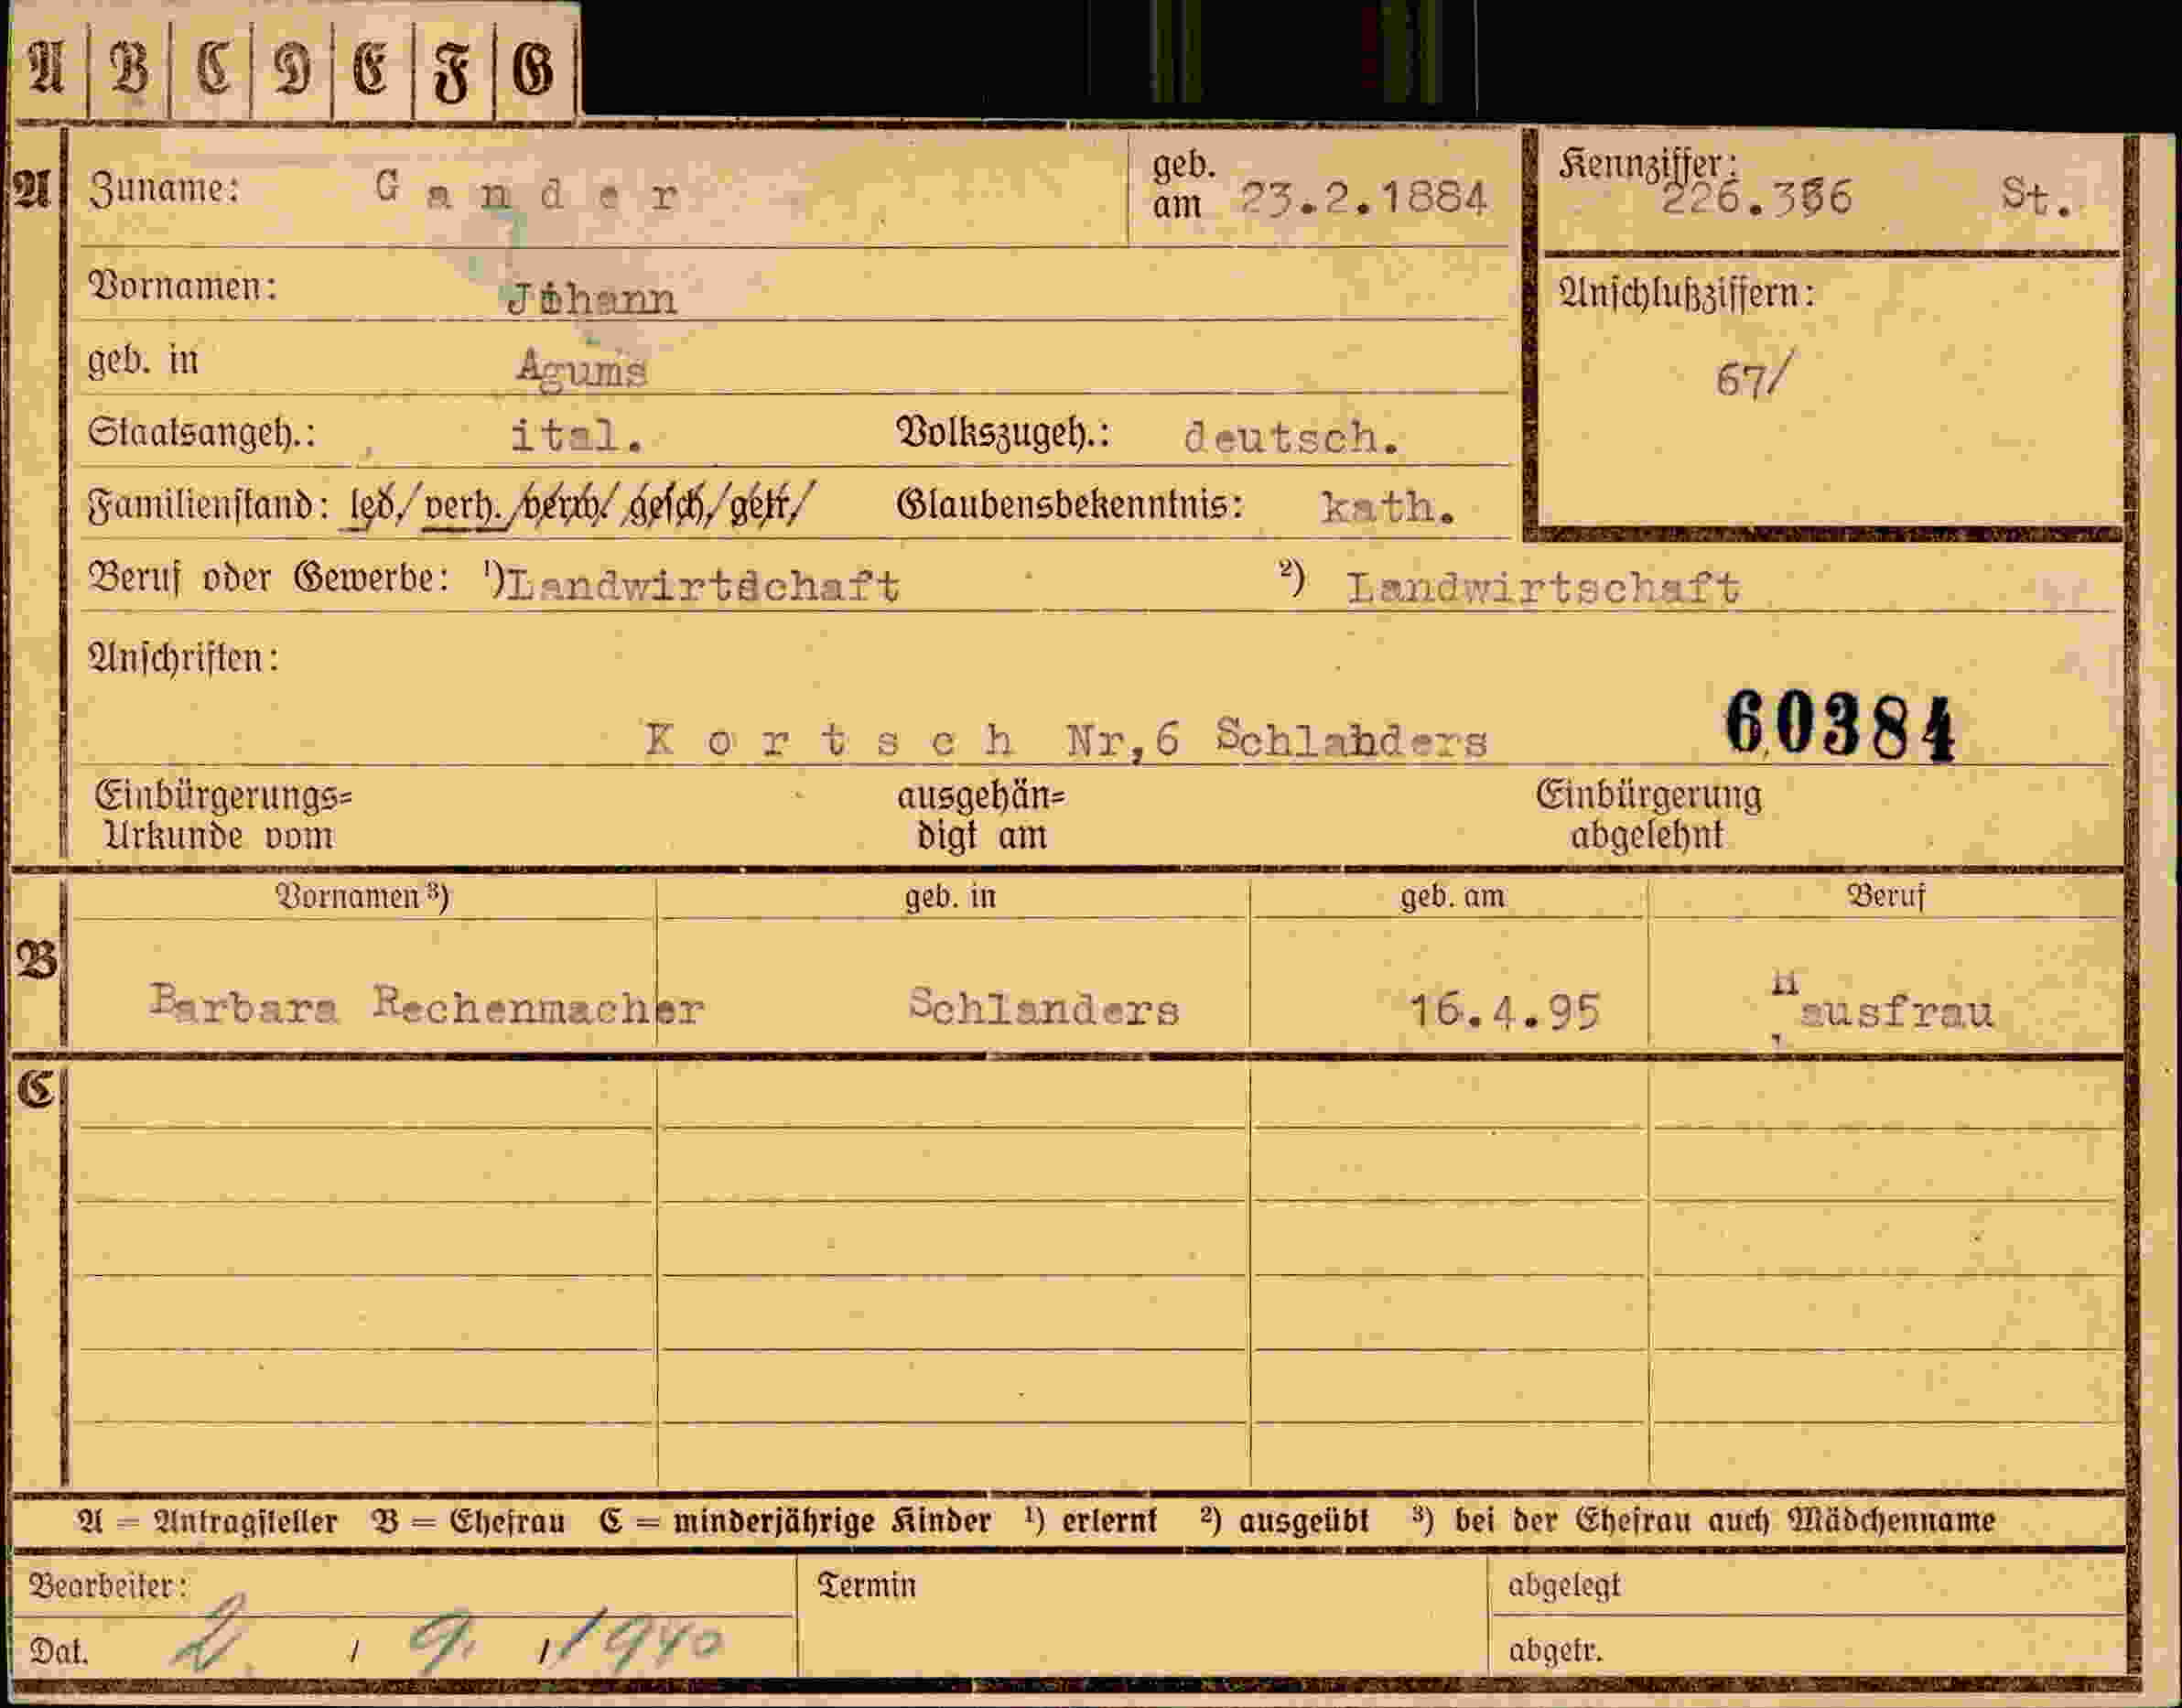 A B C D E F G
A Zuname: Gander geb. am 23.2.1884 Kennziffer: 226.386 St.
Vornamen: Johann Anschlußziffern:
geb. in Agums 67/
Staatsangeh.: ital. Volkszugeh.: deutsch.
Familienstand: led/verh./verw/gesch/getr/ Glaubensbekenntnis: kath.
Beruf oder Gewerbe: ¹)Landwirtschaft ²) Landwirtschaft
Anschriften:
Kortsch Nr,6 Schlanders 60384
Einbürgerungs= ausgehän= Einbürgerung
Urkunde vom digt am abgelehnt
Vornamen ³) geb. in geb. am Beruf
B Barbara Rechenmacher Schlanders 16.4.95 Hausfrau
C
A = Antragsteller B = Ehefrau C = minderjährige Kinder ¹) erlernt ²) ausgeübt ³) bei der Ehefrau auch Mädchenname
Bearbeiter: Termin abgelegt
Dat. 2, 9, 1940 abgetr.